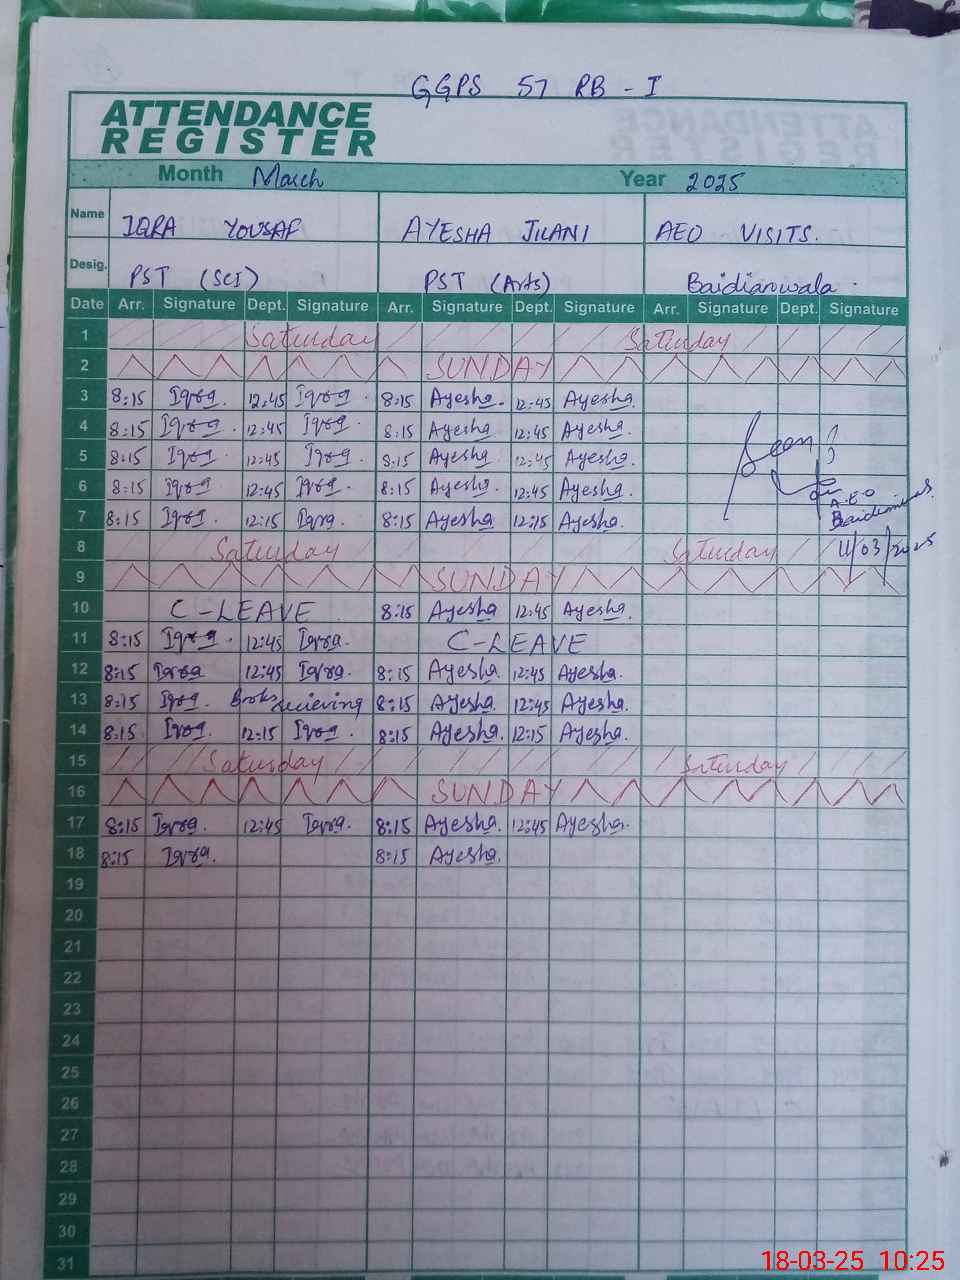 GGPS 57 RB - I
ATTENDANCE
REGISTER
Month March Year 2025
Name IQRA YOUSAF AYESHA JILANI AEO VISITS.
Desig. PST (SCI) PST (Arts) Baidianwala
Date Arr. Signature Dept. Signature Arr. Signature Dept. Signature Arr. Signature Dept. Signature
1 Saturday Saturday
2 SUNDAY
3 8:15 Iqra 12:45 Iqra 8:15 Ayesha 12:45 Ayesha
4 8:15 Iqra 12:45 Iqra 8:15 Ayesha 12:45 Ayesha
5 8:15 Iqra 12:45 Iqra 8:15 Ayesha 12:45 Ayesha Seen
6 8:15 Iqra 12:45 Iqra 8:15 Ayesha 12:45 Ayesha A.E.O
7 8:15 Iqra 12:15 Iqra 8:15 Ayesha 12:15 Ayesha
8 Saturday Saturday 11/03/2025
9 SUNDAY
10 C-LEAVE 8:15 Ayesha 12:45 Ayesha
11 8:15 Iqra 12:45 Iqra C-LEAVE
12 8:15 Iqra 12:45 Iqra 8:15 Ayesha 12:45 Ayesha
13 8:15 Iqra Books recieving 8:15 Ayesha 12:45 Ayesha
14 8:15 Iqra 12:15 Iqra 8:15 Ayesha 12:15 Ayesha
15 Saturday Saturday
16 SUNDAY
17 8:15 Iqra 12:45 Iqra 8:15 Ayesha 12:45 Ayesha
18 8:15 Iqra 8:15 Ayesha
19
20
21
22
23
24
25
26
27
28
29
30
31
18-03-25 10:25